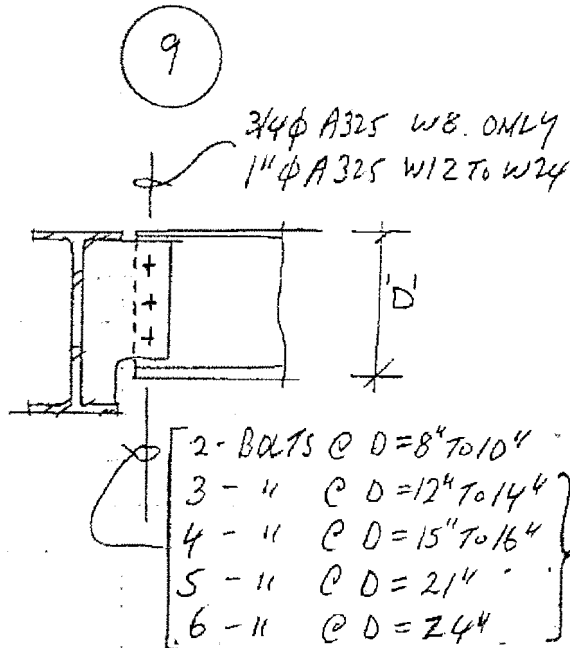 9
3/4φ A325 W8. ONLY
1"φ A325 W12 TO W24
'D'
2 - BOLTS @ D = 8" TO 10"
3 - " @ D = 12" TO 14"
4 - " @ D = 15" TO 16"
5 - " @ D = 21"
6 - " @ D = 24"